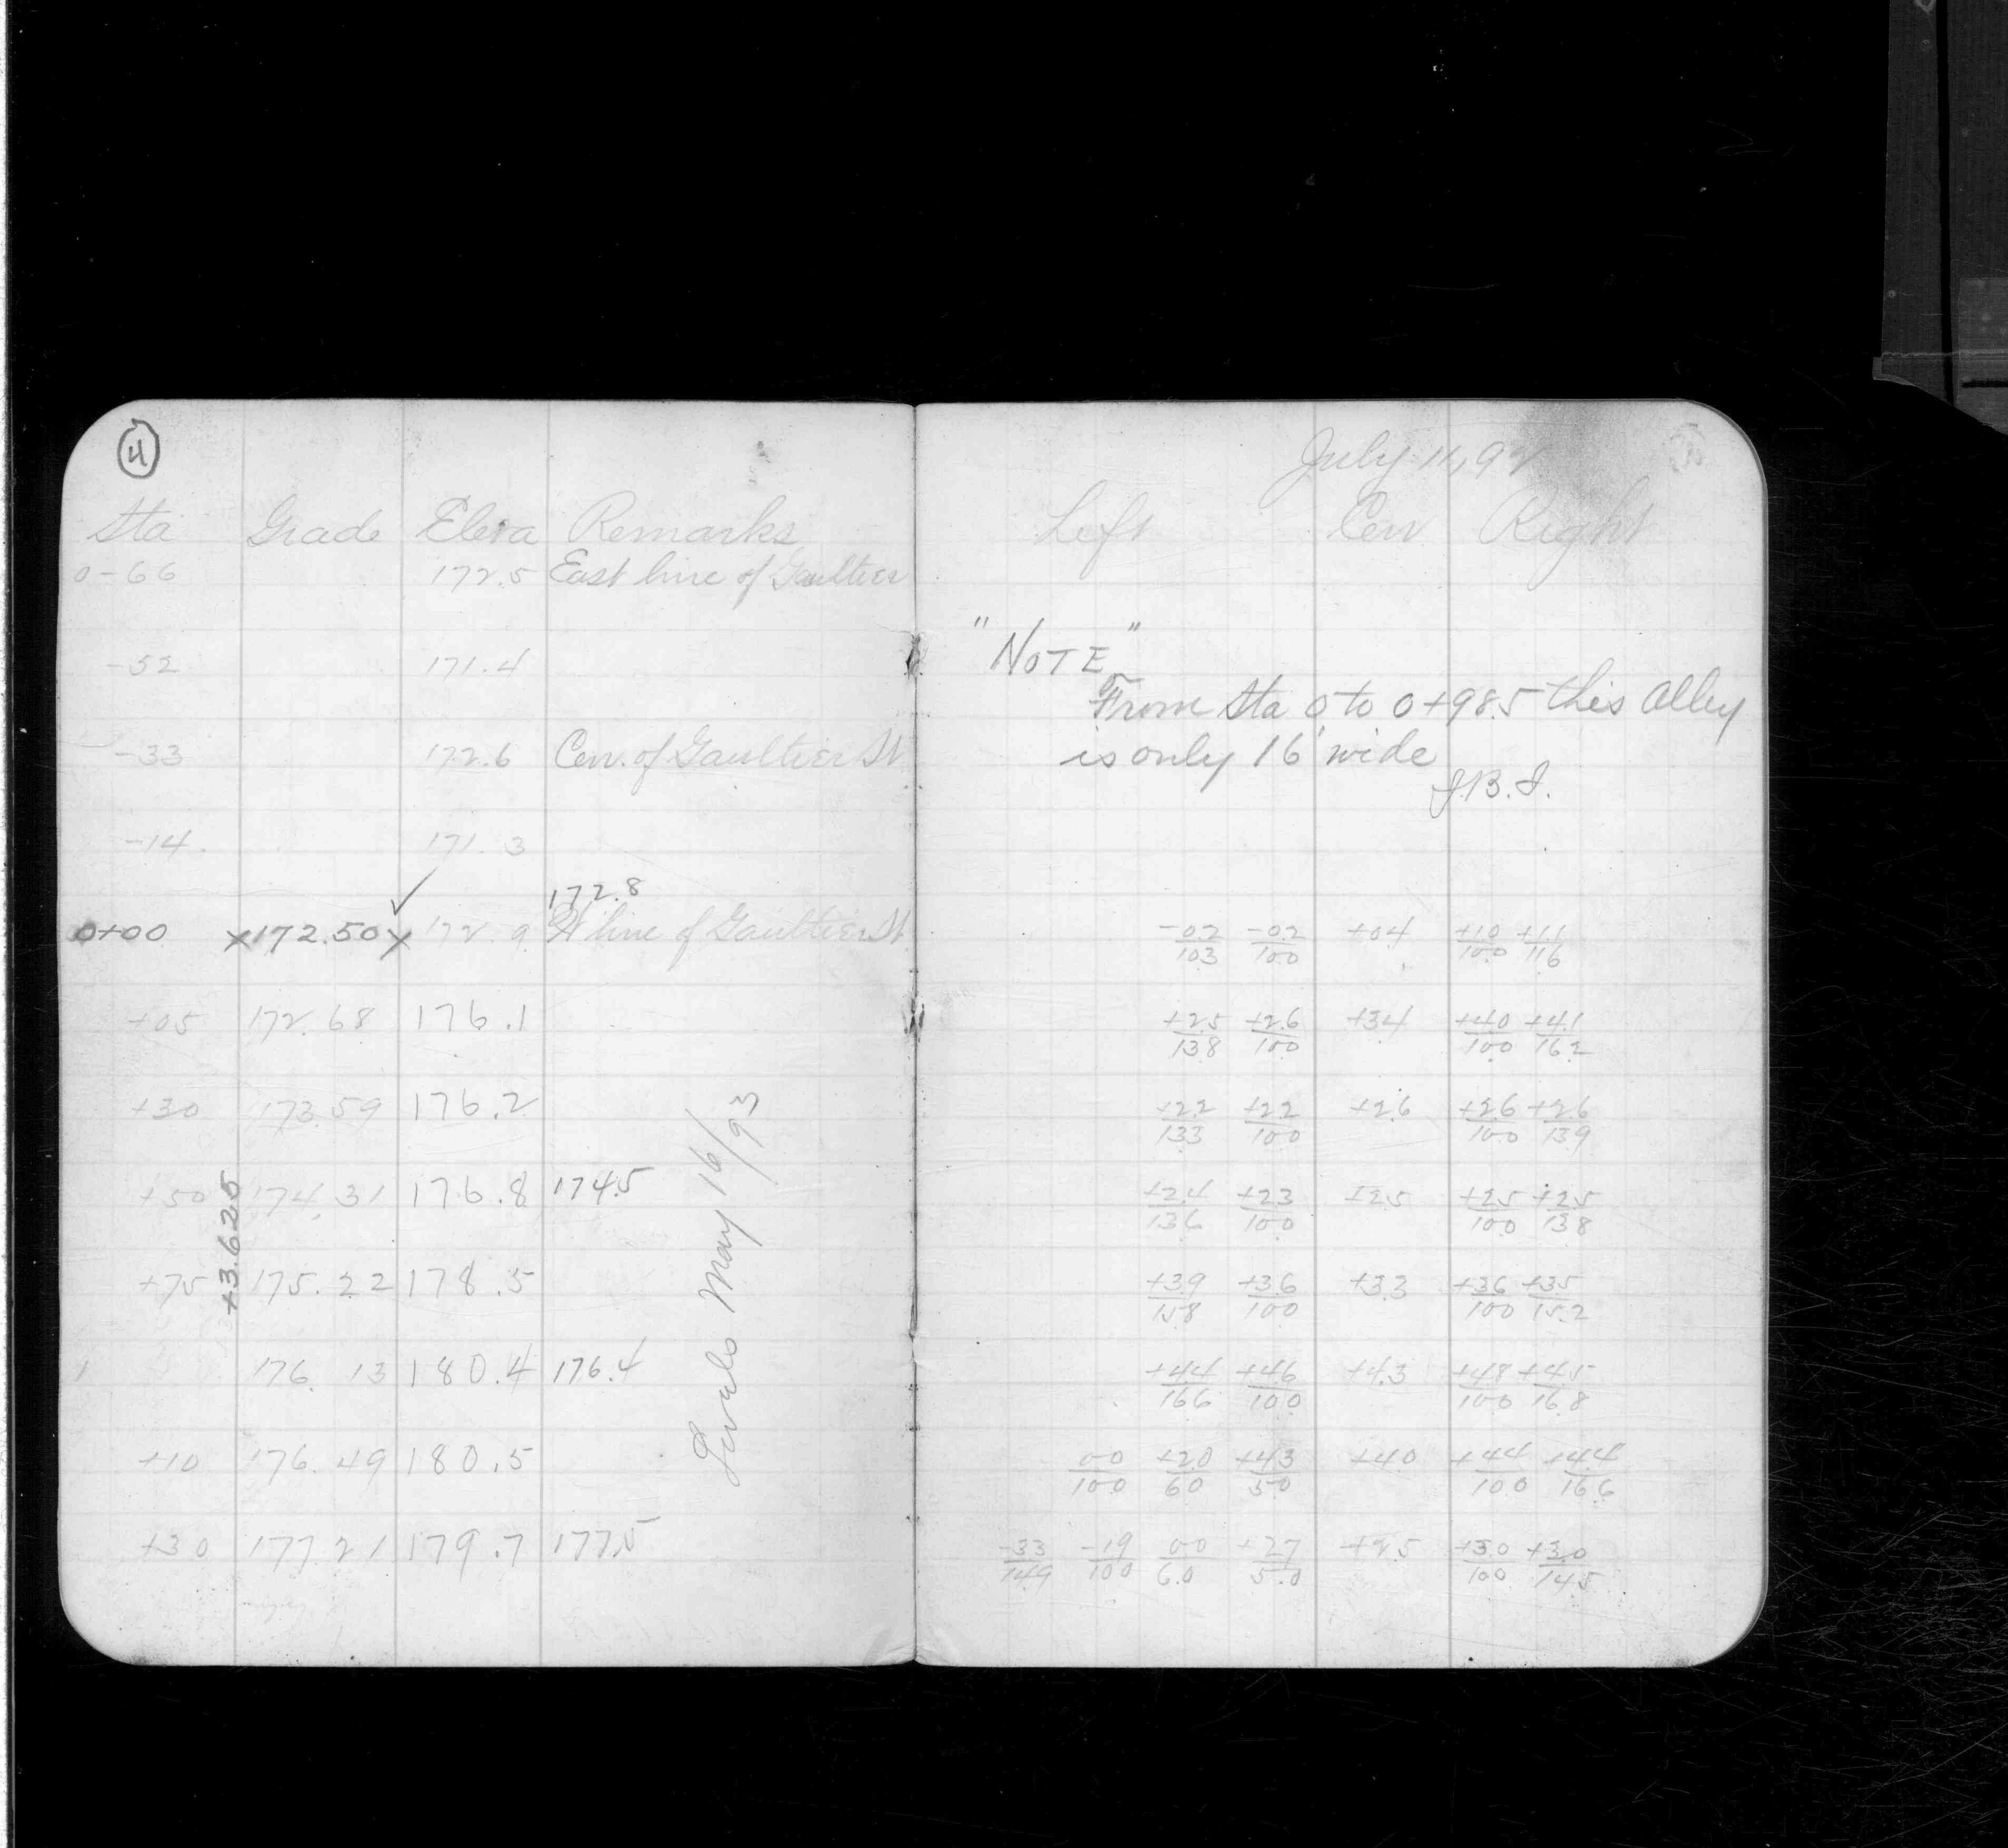 4
Sta Grade Eleva Remarks
0-66 172.5 East line of Gaultier
-52 171.4
-33 172.6 Cen. of Gaultier St
-14 171.3
172.8
0+00 x172.50x 172.9 W line of Gaultier St
+05 172.68 176.1
+30 173.59 176.2
+50 174.31 176.8 174.5
+75 175.22 178.5
1 176.13 180.4 176.4
+10 176.49 180.5
+30 177.21 179.7 177.5
+3.625
Levels May 16/93
July 11, 92
Left Cen Right
"NOTE"
From Sta 0 to 0+98.5 this Alley
is only 16' wide
J.B.I.
-0.2/10.3 -0.2/10.0 +0.4 +1.0/10.0 +1.1/11.6
+2.5/13.8 +2.6/10.0 +3.4 +4.0/10.0 +4.1/16.2
+2.2/13.3 +2.2/10.0 +2.6 +2.6/10.0 +2.6/13.9
+2.4/13.6 +2.3/10.0 +2.5 +2.5/10.0 +2.5/13.8
+3.9/15.8 +3.6/10.0 +3.3 +3.6/10.0 +3.5/15.2
+4.4/16.6 +4.6/10.0 +4.3 +4.8/10.0 +4.5/16.8
0.0/10.0 +2.0/6.0 +4.3/5.0 +4.0 +4.4/10.0 +4.4/16.6
-3.3/14.9 -1.9/10.0 0.0/6.0 +2.7/5.0 +2.5 +3.0/10.0 +3.0/14.5